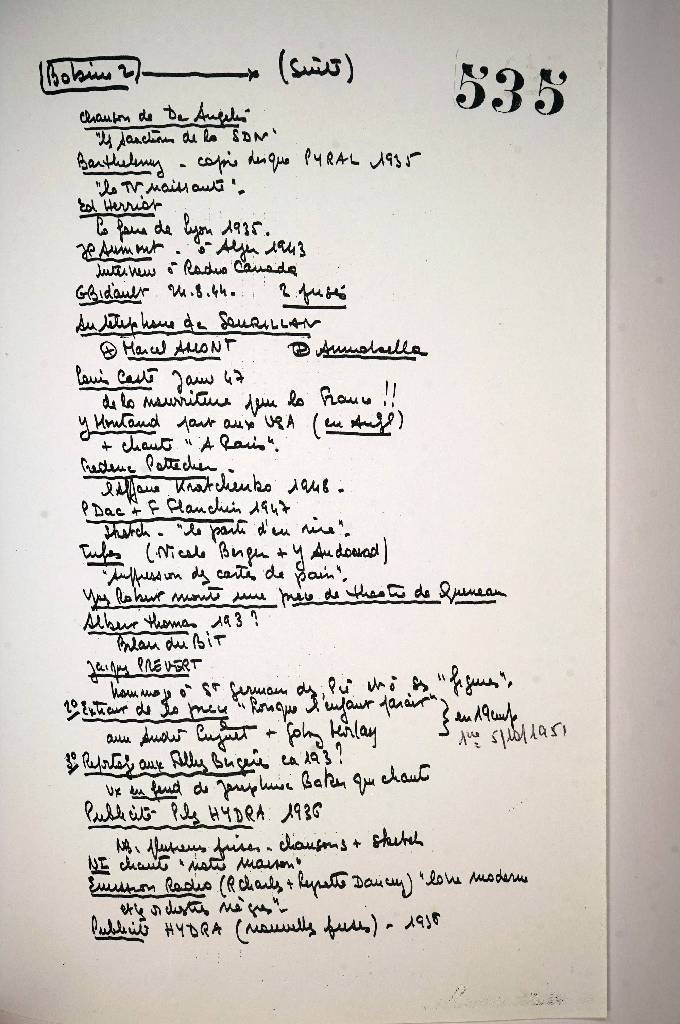 Bobine 2 → (Suite)
535
Chanson de De Angelis
"les sanctions de la SDN"
Barthelemy - copie disque PYRAL 1935
"la TV naissante".
Ed Herriot
la foire de Lyon 1935.
JP Aumont - à Alger 1943
interview à Radio Canada
G Bidault 24.8.44. 2 prises
Au téléphone de
⊕ Marcel AMONT ⊕ Annabella
Louis Casté Janv 47
de la nourriture pour la France !!
Y Montand part aux USA (en Angl)
+ chante "A Paris".
Frederic Pottecher -
l'affaire Kratchenko 1948 -
P Dac + F Blanche 1947
sketch - "le parti d'en rire".
(Nicole Berger + Y
"suppression des cartes de pain".
Yves Robert monte une pièce de theatre de Queneau
Albert Thomas 193 ?
Bilan du BIT
Jacques PREVERT
hommage à St Germain des Pré et à ses "figures".
2° Extrait de la pièce "Lorsque l'enfant parait"
avec André Luguet + Gaby Morlay
1ère 5/10/1951
3° Reportage aux Folies Bergère ca 193 ?
vx en fond de Josephine Baker qui chante
Publicité Pile HYDRA 1936
NB. plusieurs prises - chansons + sketch
chante "notre maison"
Emission Radio (R Charles + Dancey) "love moderne
et les orchestres nègres"-
Publicité HYDRA (nouvelles prises) - 1936